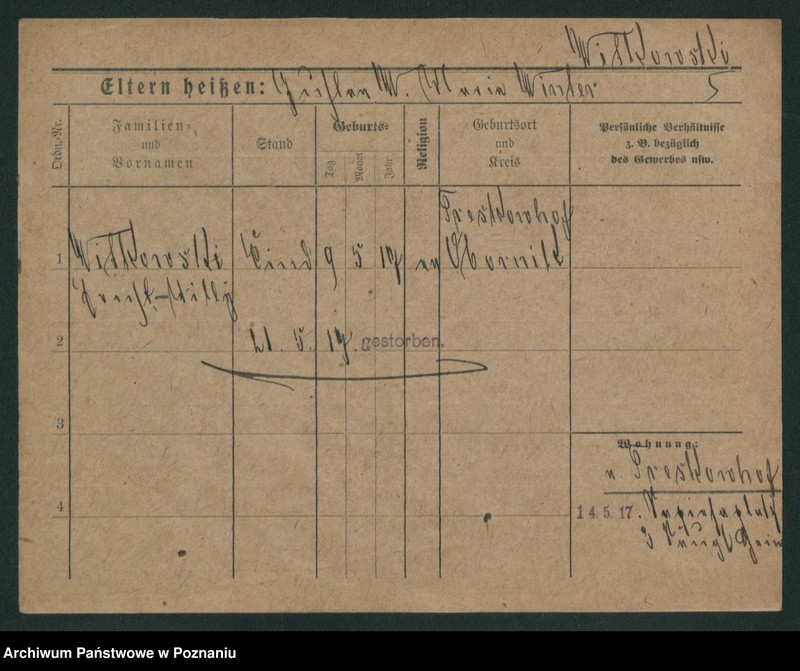 Witkowski
Eltern heißen: Gustav W. Maria Winter 5
Ordn.-Nr.
Familien-
und
Vornamen
Stand
Geburts-
Tag
Monat
Jahr
Religion
Geburtsort
und
Kreis
Persönliche Verhältnisse
z. B. bezüglich
des Gewerbes usw.
Treskowhof
1 Witkowski Kind 9 5 17 ev Obornik
Ernst-Willy
2 21. 5. 17. gestorben.
3
Wohnung:
n. Treskowhof
4
14.5.17. Sapiehaplatz
3
Archiwum Państwowe w Poznaniu